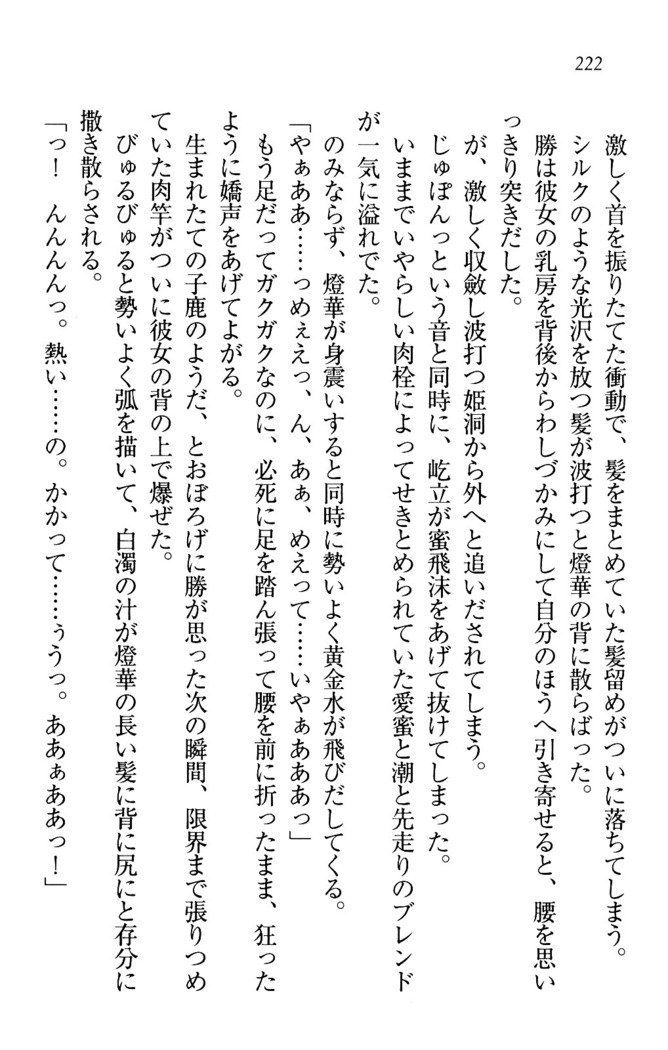 222
激しく首を振りたてた衝動で、髪をまとめていた髪留めがついに落ちてしまう。
シルクのような光沢を放つ髪が波打つと燈華の背に散らばった。
勝は彼女の乳房を背後からわしづかみにして自分のほうへ引き寄せると、腰を思い
っきり突きだした。
が、激しく収斂し波打つ姫洞から外へと追いだされてしまう。
じゅぽんっという音と同時に、屹立が蜜飛沫をあげて抜けてしまった。
いままでいやらしい肉栓によってせきとめられていた愛蜜と潮と先走りのブレンド
が一気に溢れでた。
のみならず、燈華が身震いすると同時に勢いよく黄金水が飛びだしてくる。
「やぁああ……っめぇえっ、ん、あぁ、めえって……いやぁあああっ」
もう足だってガクガクなのに、必死に足を踏ん張って腰を前に折ったまま、狂った
ように嬌声をあげてよがる。
生まれたての子鹿のようだ、とおぼろげに勝が思った次の瞬間、限界まで張りつめ
ていた肉竿がついに彼女の背の上で爆ぜた。
びゅるびゅると勢いよく弧を描いて、白濁の汁が燈華の長い髪に背に尻にと存分に
撒き散らされる。
「っ！　んんんんっ。熱い……の。かかって……ぅうっ。ああぁああっ！」